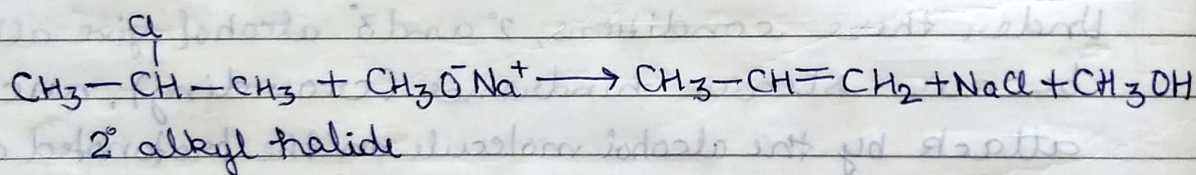 Cl
CH₃-CH-CH₃ + CH₃O⁻Na⁺ ⟶ CH₃-CH=CH₂ + NaCl + CH₃OH
2° alkyl halide